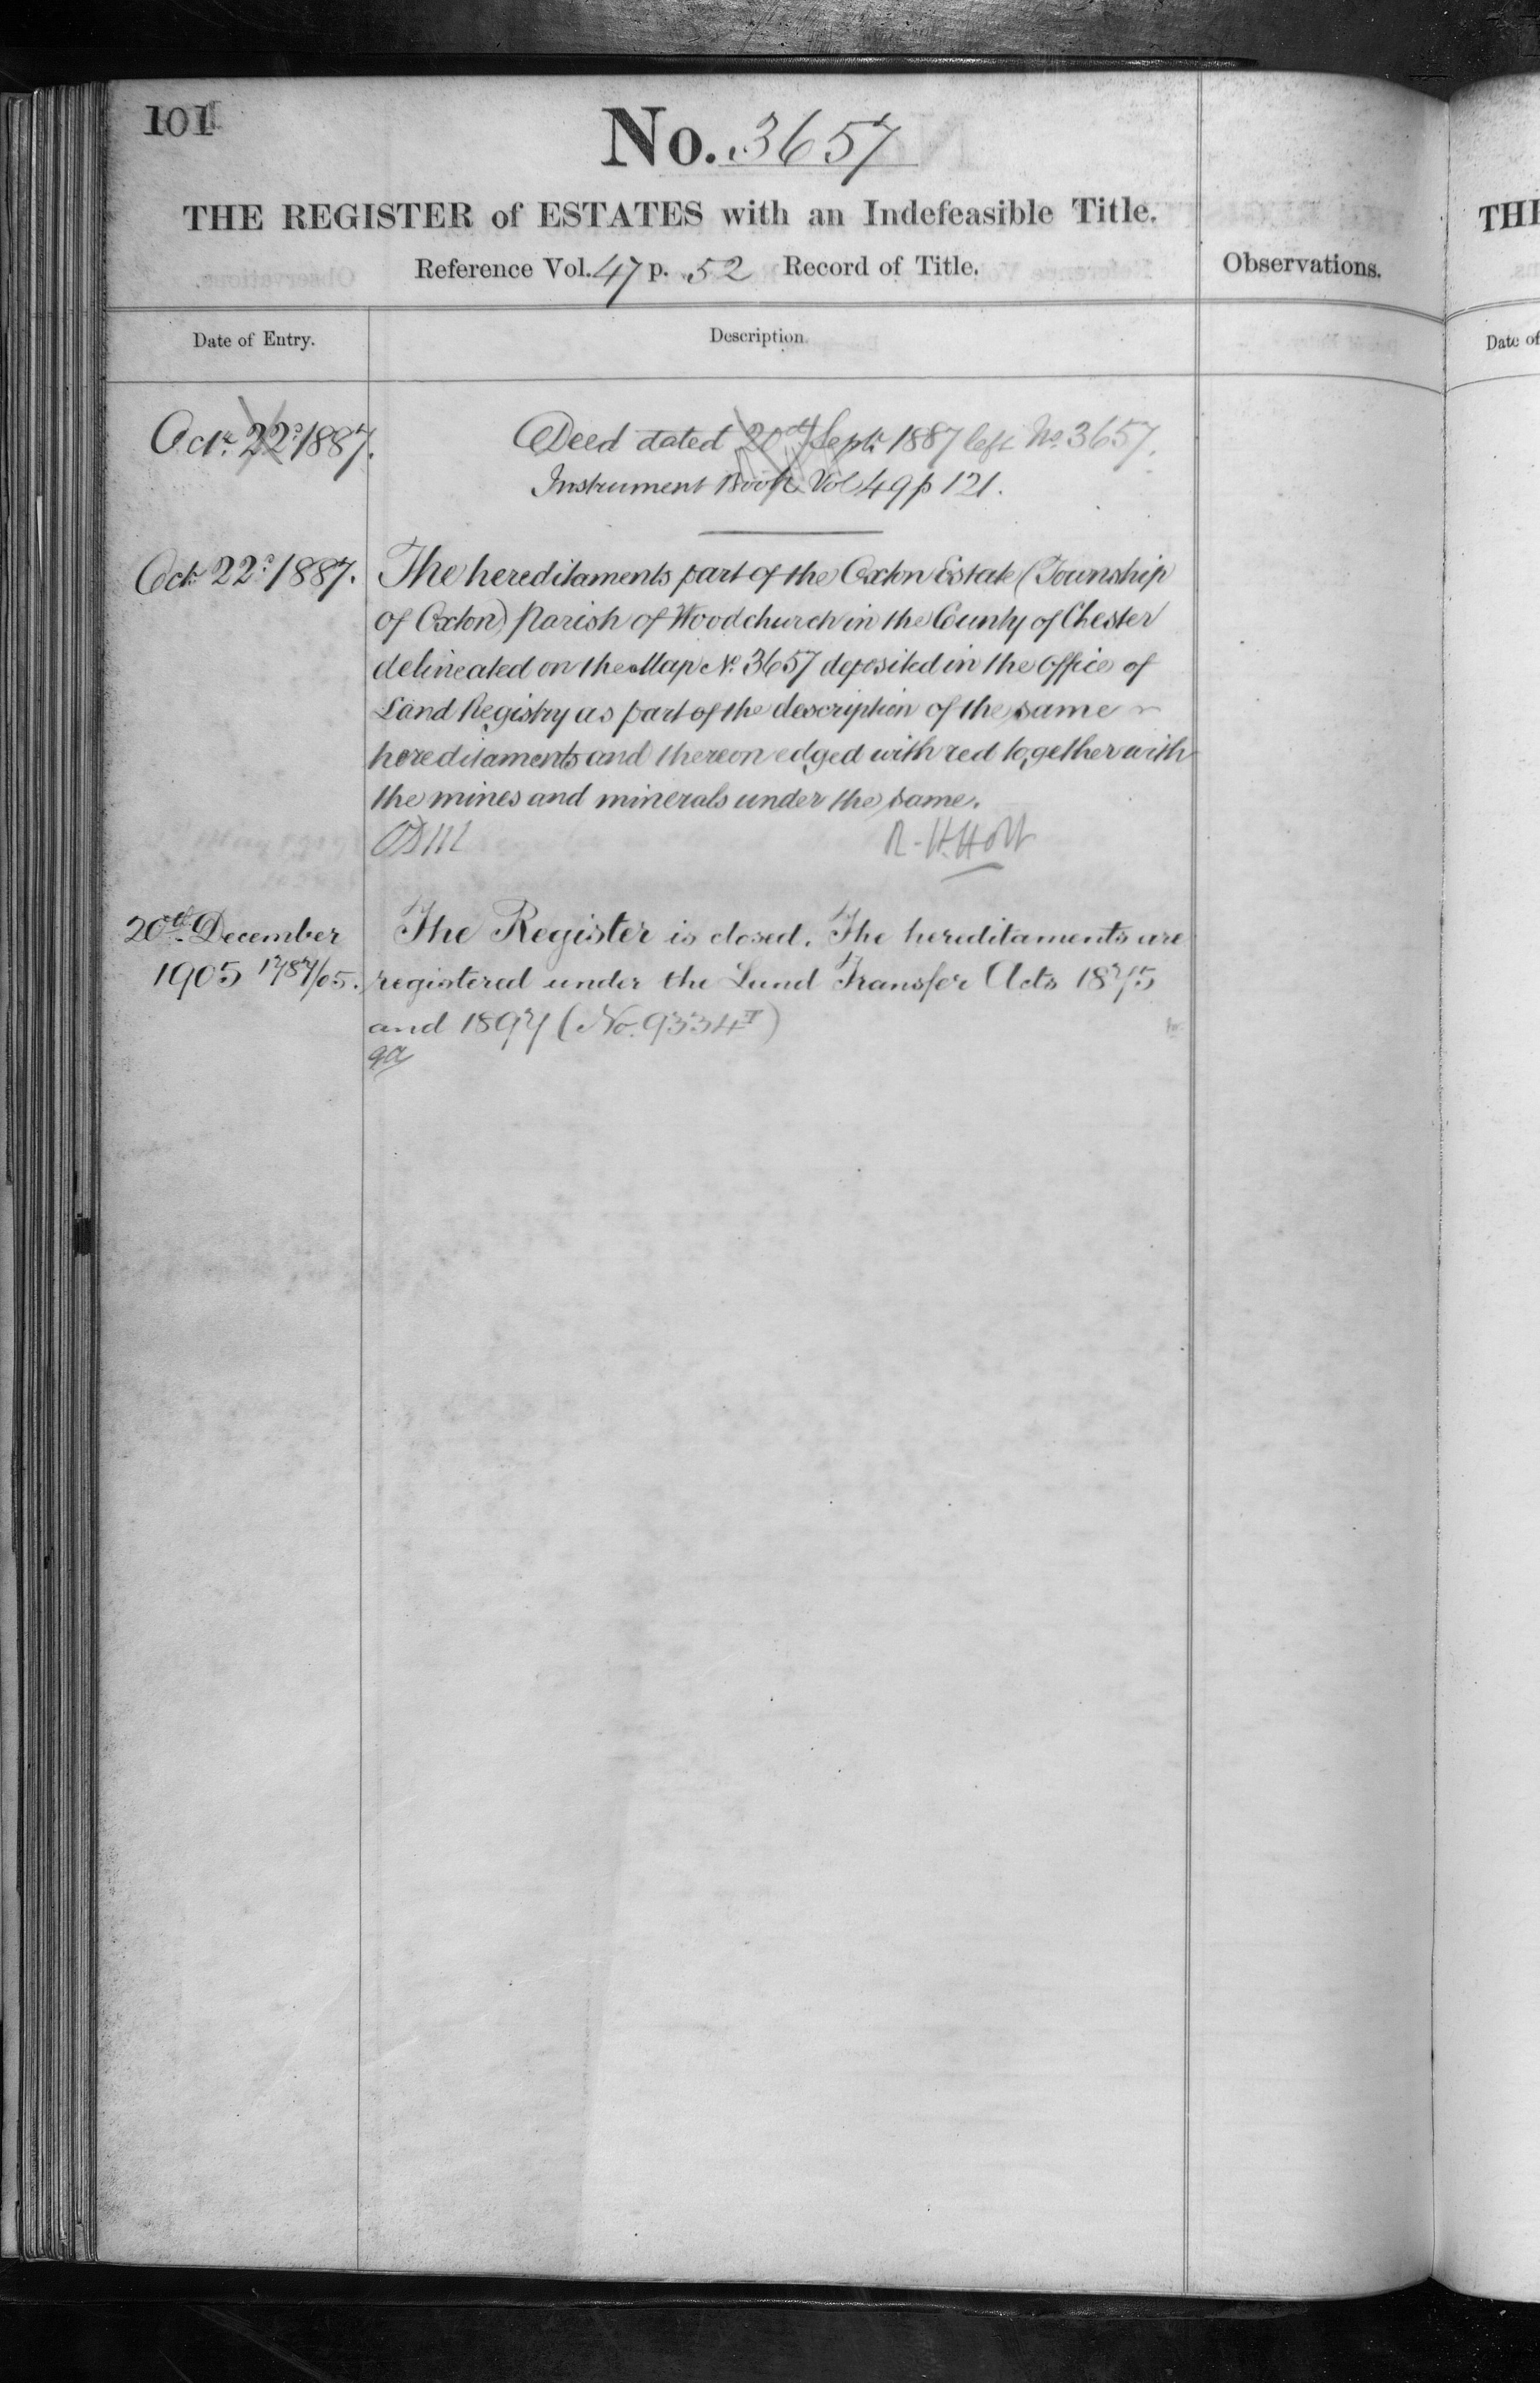 101
No. 3657
THE REGISTER of ESTATES with an Indefeasible Title.
Reference Vol. 47 p. 52 Record of Title.
Observations.
Date of Entry.
Description.
Octr. 22d. 1887.
Deed dated 20th Septr. 1887 left No. 3657.
Instrument Book Vol 49 p 121.
Octr. 22d. 1887.
The hereditaments part of the Oxton Estate (Township
of Oxton) Parish of Woodchurch in the County of Chester
delineated on the Map No. 3657 deposited in the Office of
Land Registry as part of the description of the same
hereditaments and thereon edged with red together with
the mines and minerals under the same.
R. H. Holt
20th December
1905 1787/05.
The Register is closed. The hereditaments are
registered under the Land Transfer Acts 1875
and 1897 (No. 9334)
THE
Date of